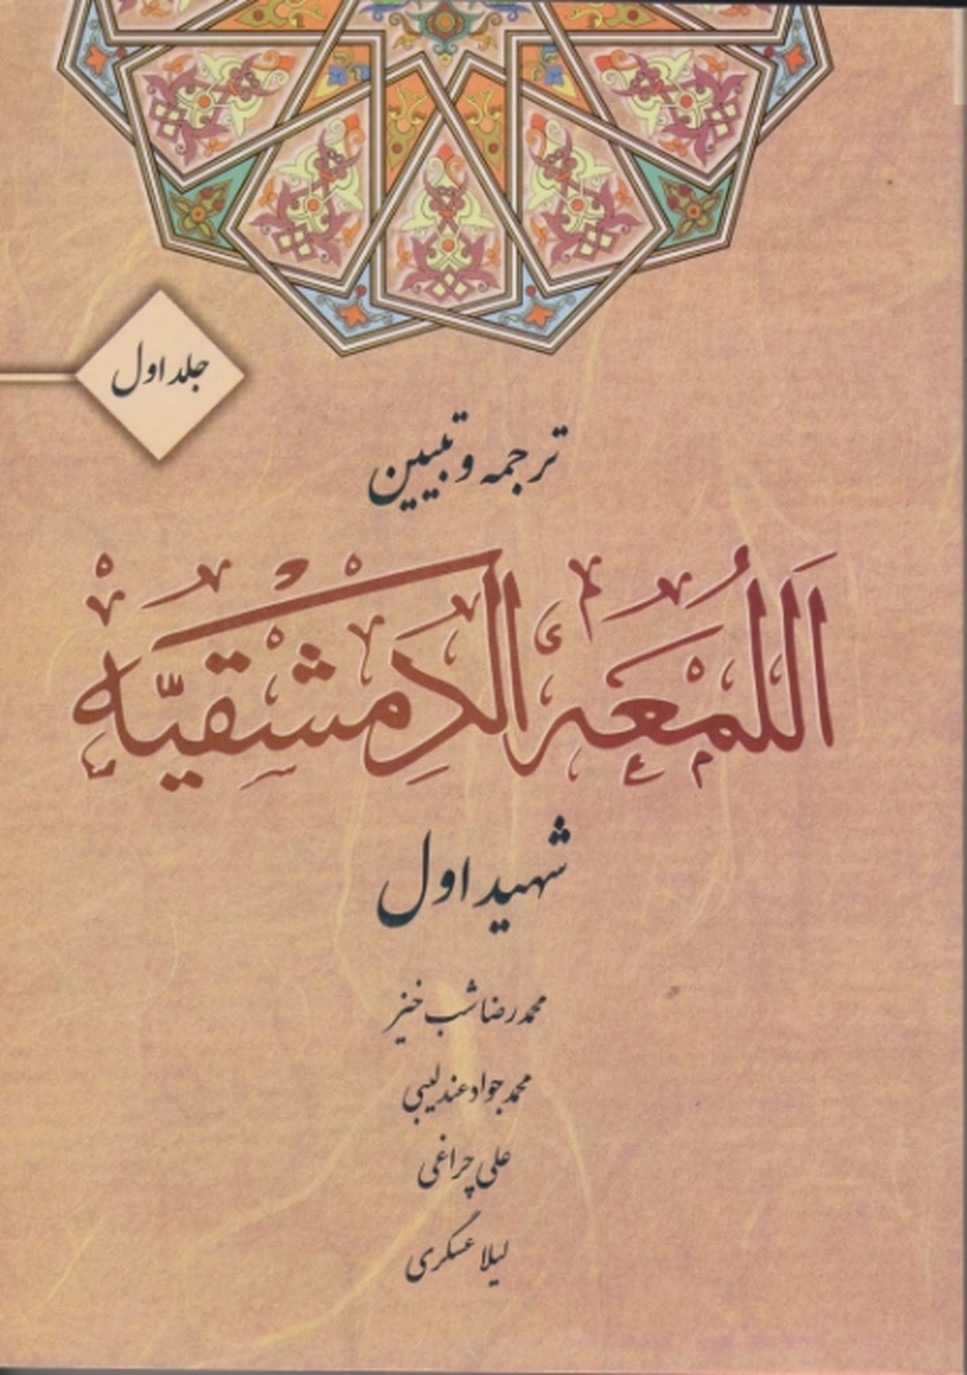 جلد اول
ترجمه و تبیین
اللمعه الدمشقیه
شهید اول
محمدرضا شب خیز
محمدجواد عندلیبی
علی چراغی
لیلا عسگری